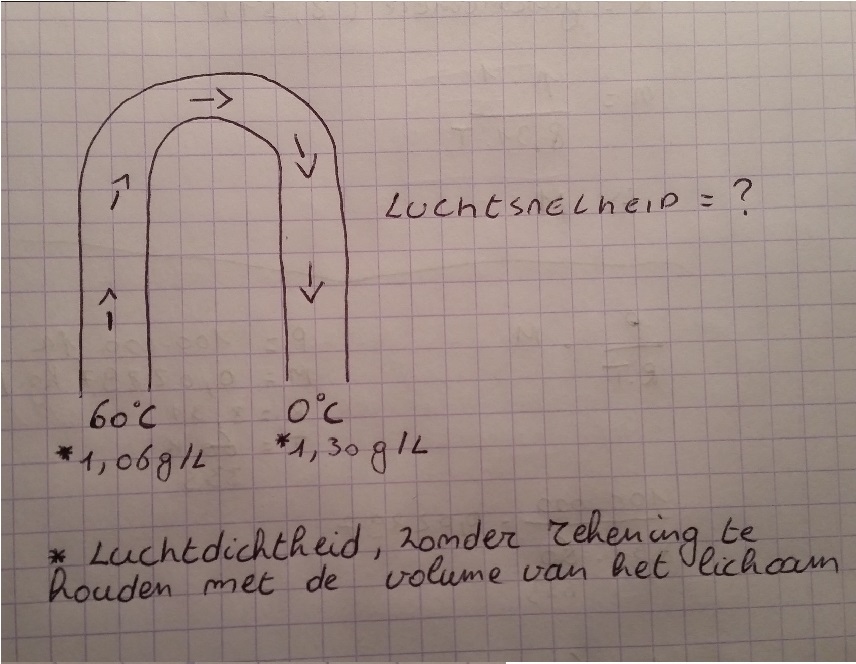 LUCHTSNELHEID = ?
60°C 0°C
*1,06g/L *1,30g/L
* Luchtdichtheid, zonder rekening te
houden met de volume van het lichaam